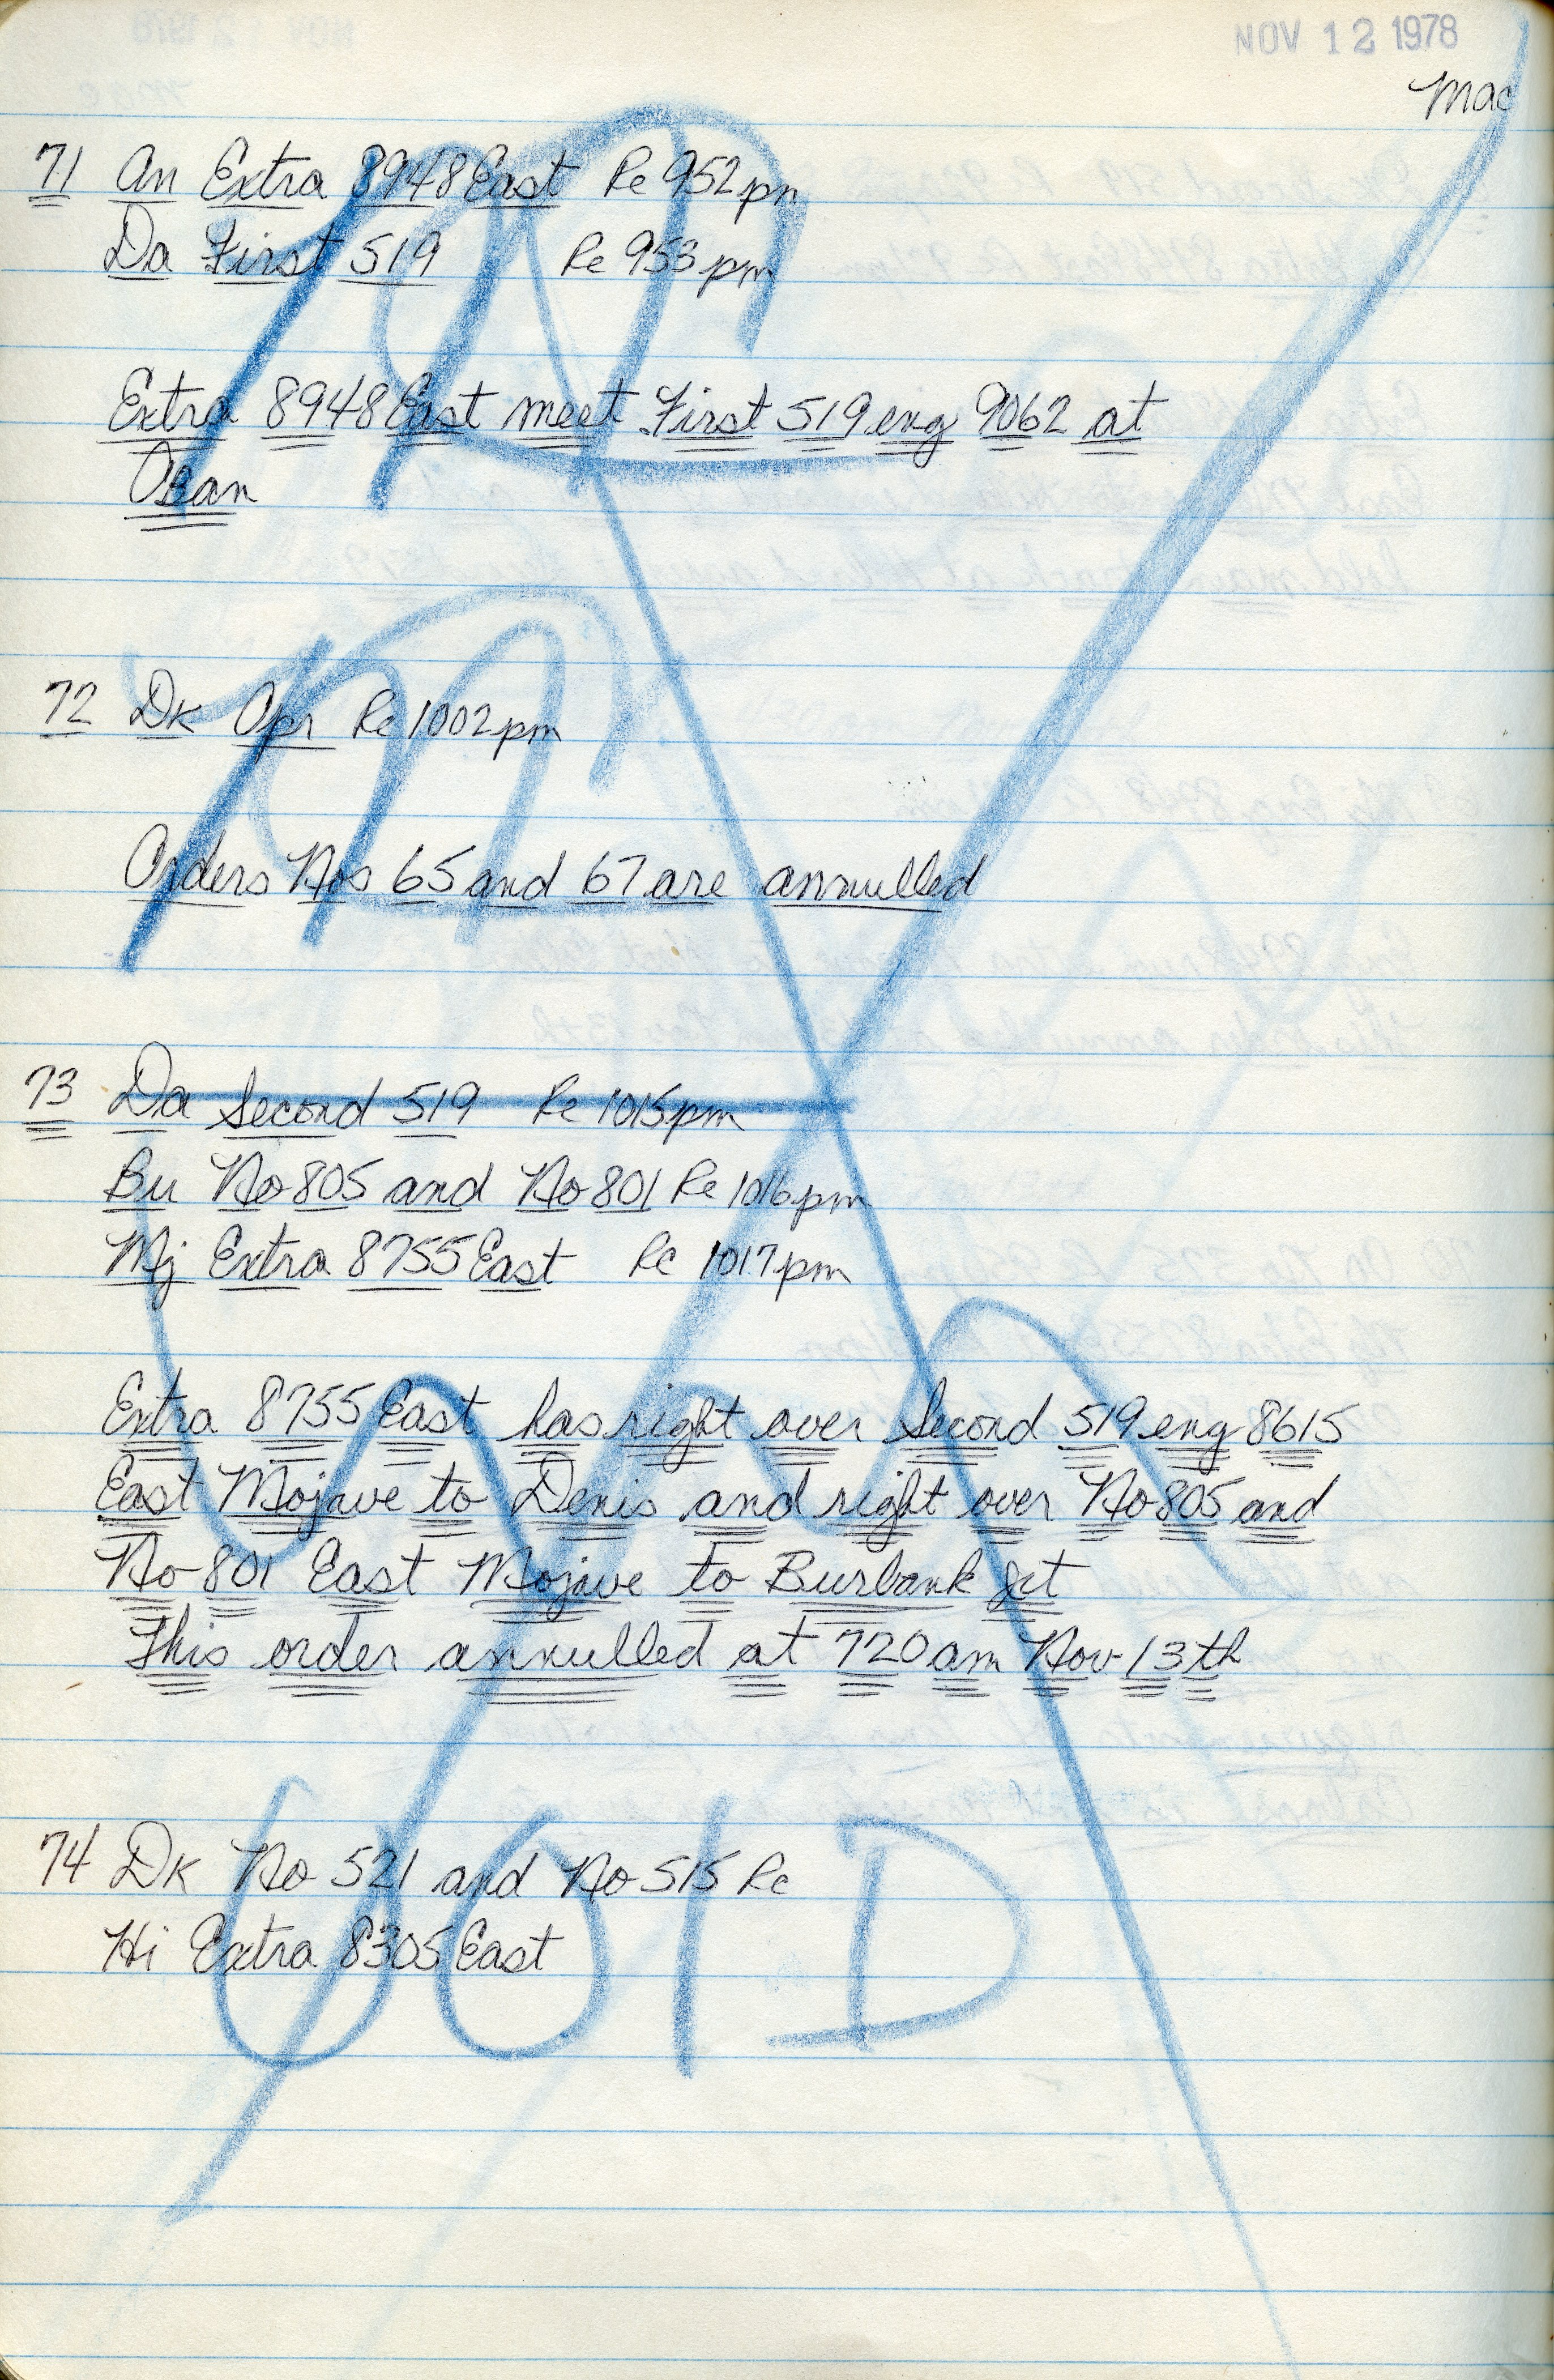 NOV 12 1978
Mac
71 An Extra 8948 East Re 952pm
Da First 519 Re 953pm
Extra 8948 East meet First 519 eng 9062 at
Oban
72 Dk Opr Re 1002pm
Orders Nos 65 and 67 are annulled
73 Da Second 519 Re 1015pm
Bu No 805 and No 801 Re 1016pm
Mj Extra 8755 East Re 1017pm
Extra 8755 East has right over Second 519 eng 8615
East Mojave to Denis and right over No 805 and
No 801 East Mojave to Burbank Jct
This order annulled at 720 am Nov 13th
74 Dk No 521 and No 515 Re
Hi Extra 8305 East
VOID